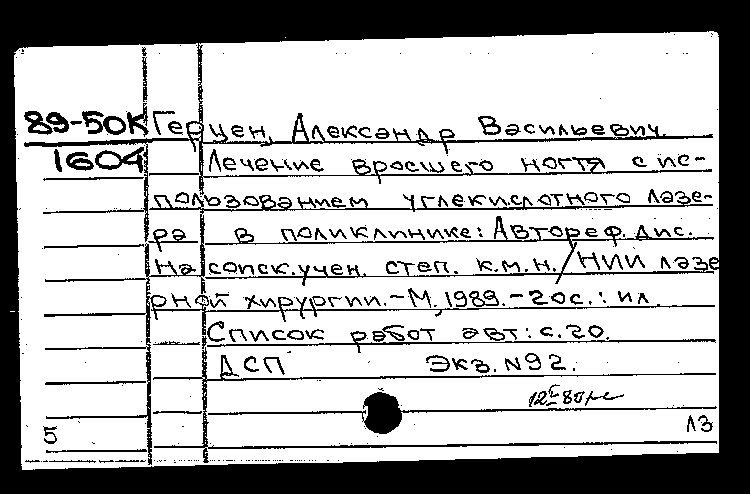 89-50К Герцен, Александр Васильевич.
1604 Лечение вросшего ногтя с ис-
пользованием углекислотного лазе-
ра в поликлинике: Автореф. дис.
на соиск. учен. степ. к.м.н. / НИИ лазе
рной хирургии. - М, 1989. - 20 с. : ил.
Список работ авт: с. 20.
ДСП Экз. N92.
5 ЛЗ